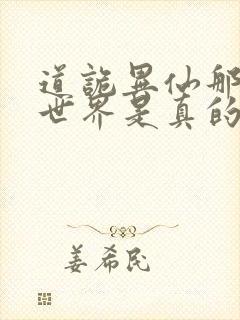 道诡异仙那
世界是真的
姜希民